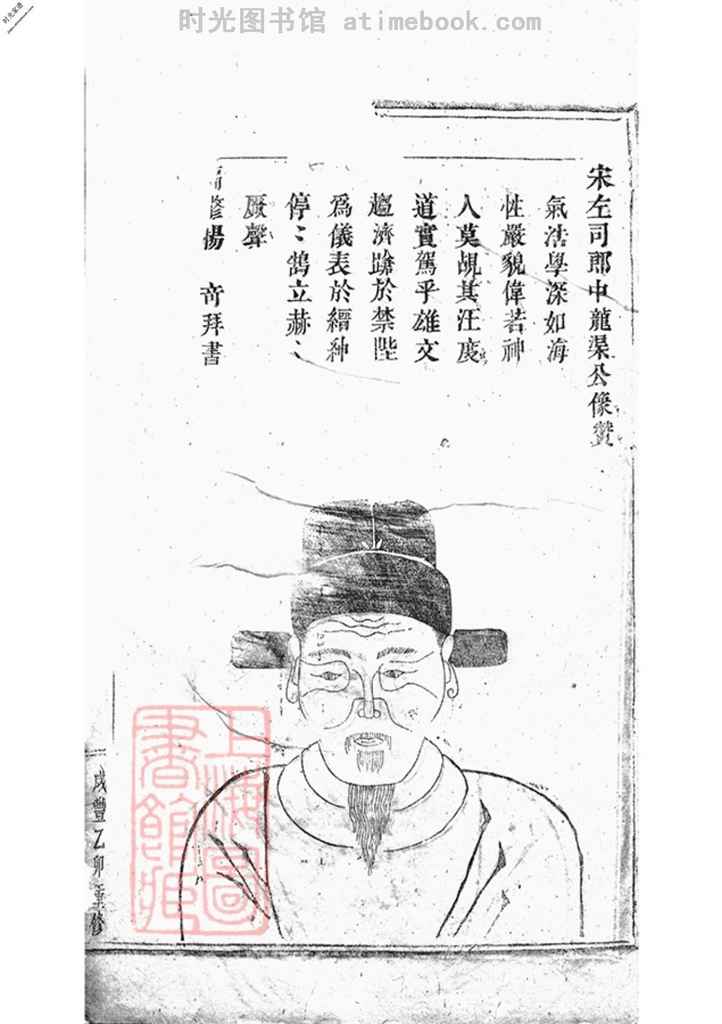 时光图书馆 atimebook.com
宋左司郎中龍渠公像贊
氣浩學深如海
性嚴貌偉若神
人莫覘其汪度
道實駕乎雄文
趨濟蹌於禁陛
為儀表於縉紳
停〻鵠立赫〻
厥聲
修楊 拜書
咸豐乙卯重修
上海圖書館藏